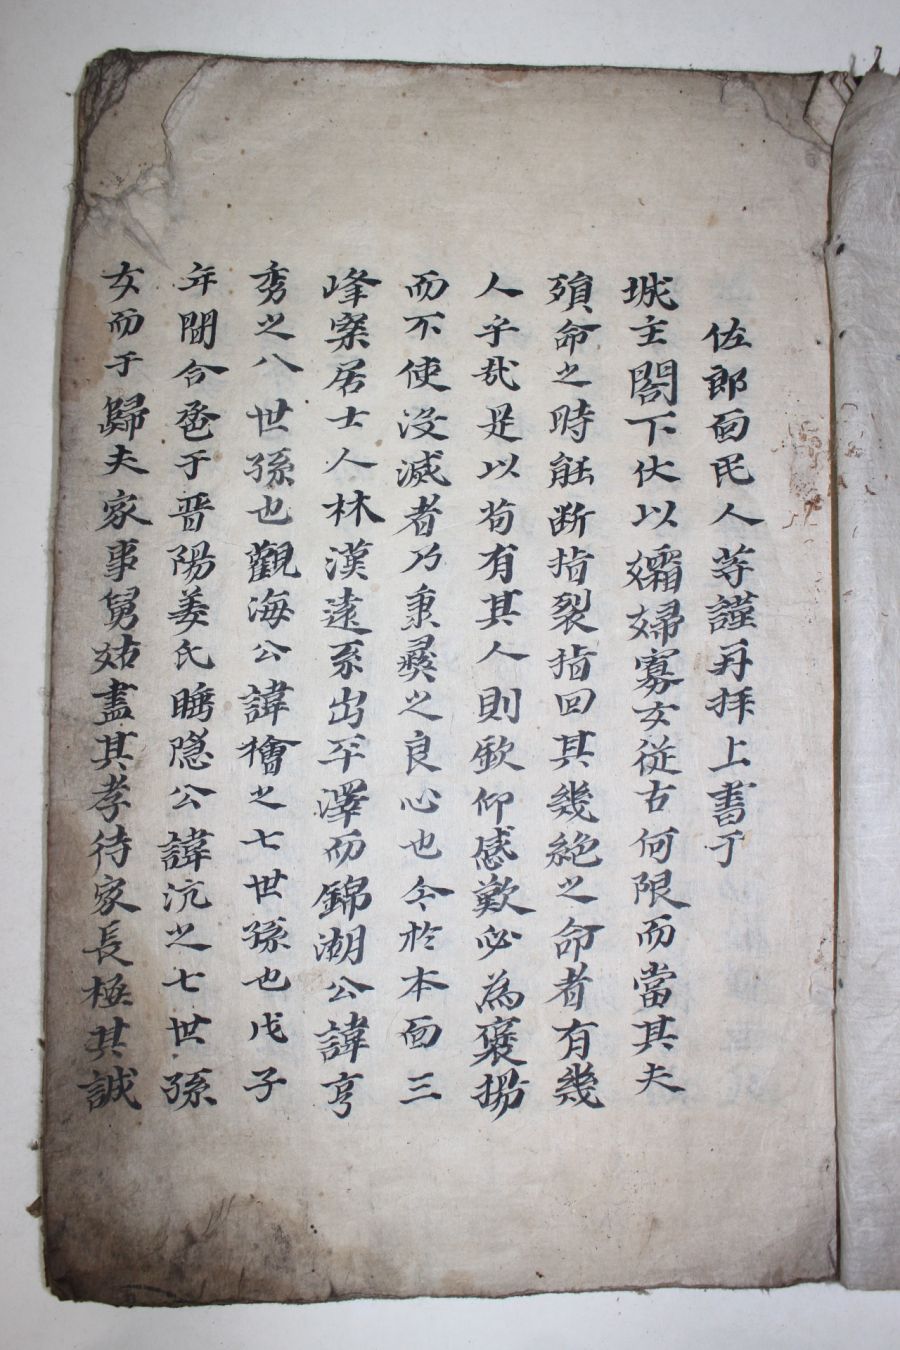 佐郎面民人等謹再拜上書于
城主閤下伏以孀婦寡女從古何限而當其夫
殞命之時能断指裂指回其幾絶之命者有幾
人乎哉是以苟有其人則欽仰感歎必為褒揚
而不使沒滅者乃秉彛之良心也今於本面三
峰寀居士人林漢遠系出平澤而錦湖公諱亨
秀之八世孫也觀海公諱檜之七世孫也戊子
年間合巹于晋陽姜氏睡隱公諱沆之七世孫
女而于歸夫家事舅姑盡其孝待家長極其誠